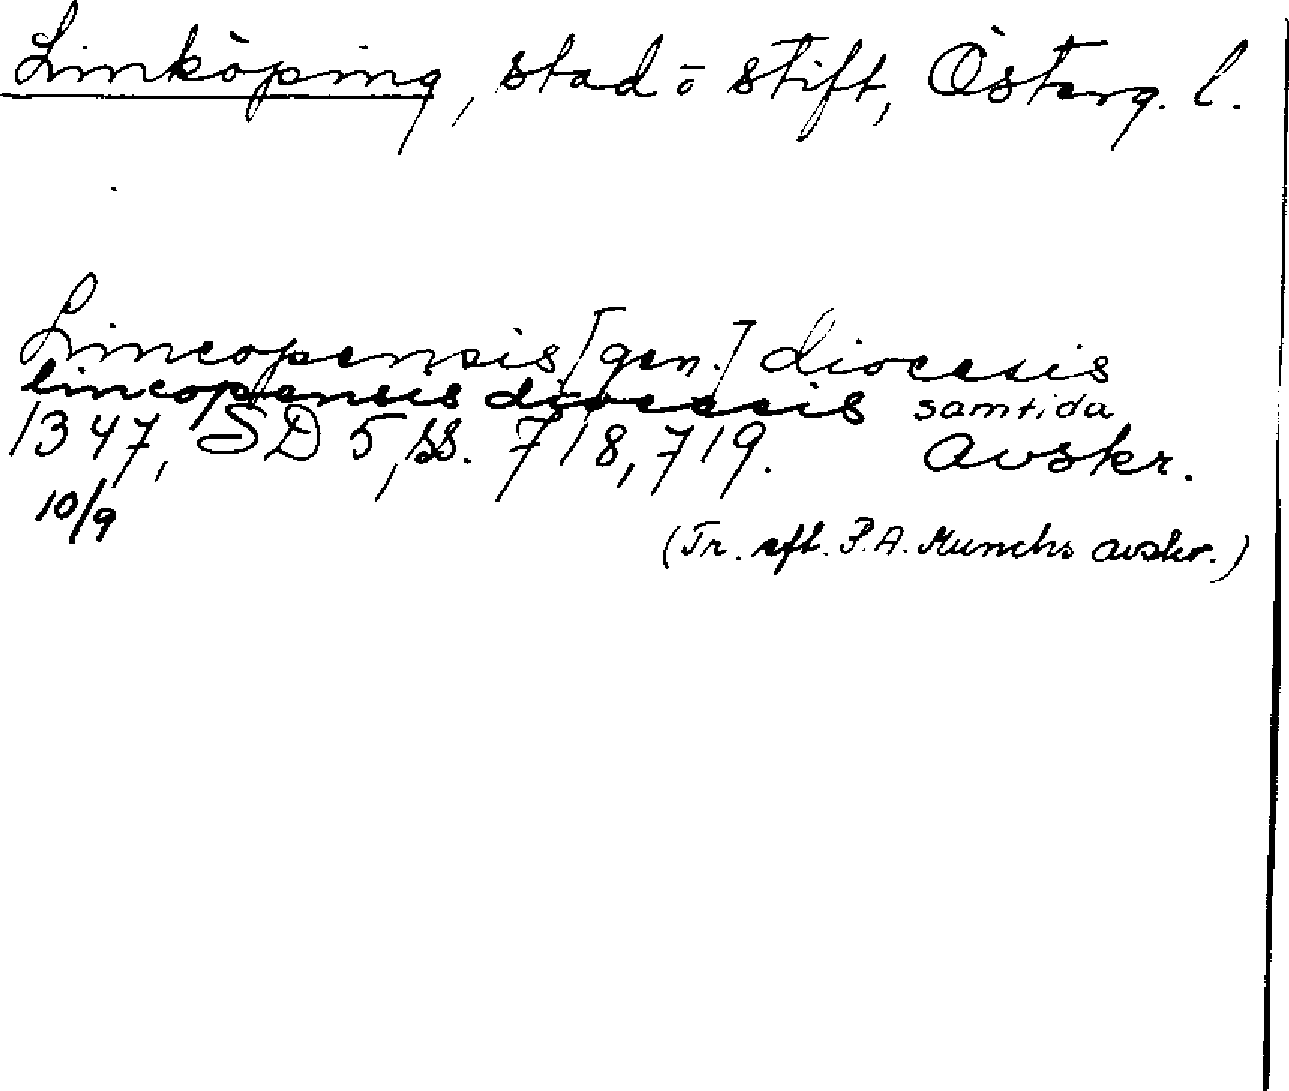 Linköping, stad o stift, Österg. l.
Lincopensis [gen.] diocesis
lincopensis diocesis samtida
1347, SD 5, ss. 718, 719. avskr.
10/9
(Tr. eft. P. A. Munchs avskr.)